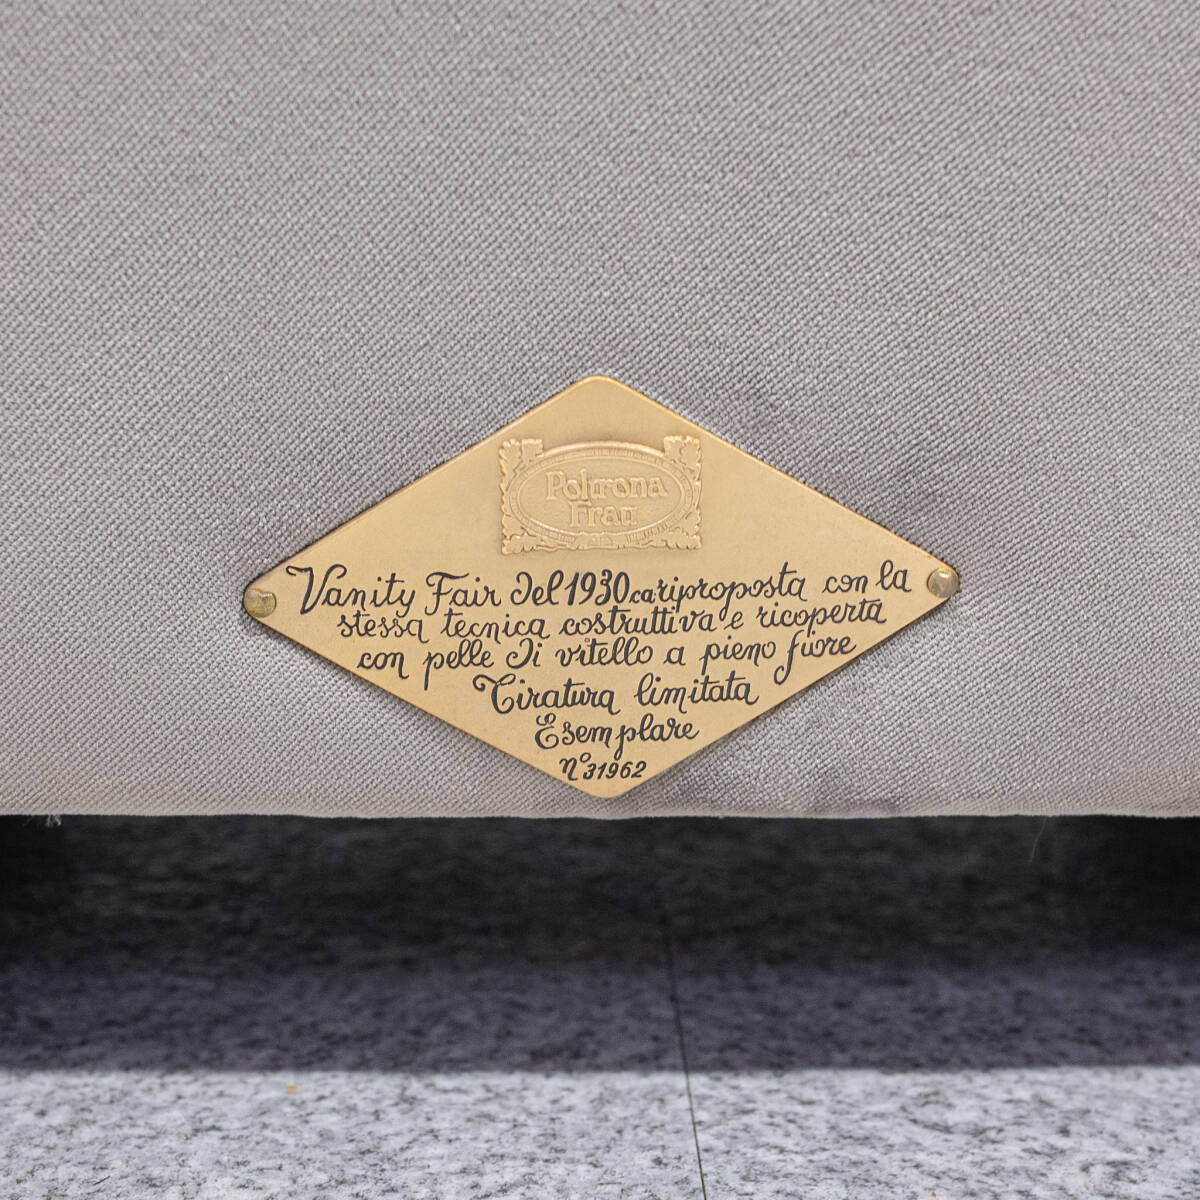 Poltrona
Frau
Vanity Fair del 1930 ca riproposta con la
stessa tecnica costruttiva e ricoperta
con pelle di vitello a pieno fiore
Tiratura limitata
Esemplare
n° 31962